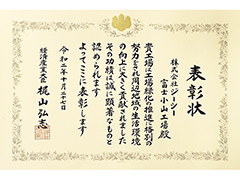 表彰状
株式会社ジーシー
富士小山工場殿
貴工場は工場緑化の推進に格別の
努力をされ周辺地域の生活環境
の向上に大きく貢献されました
その功績は誠に顕著なものと
認められます
よってここに表彰します
令和二年十月二十七日
経済産業大臣 梶山弘志